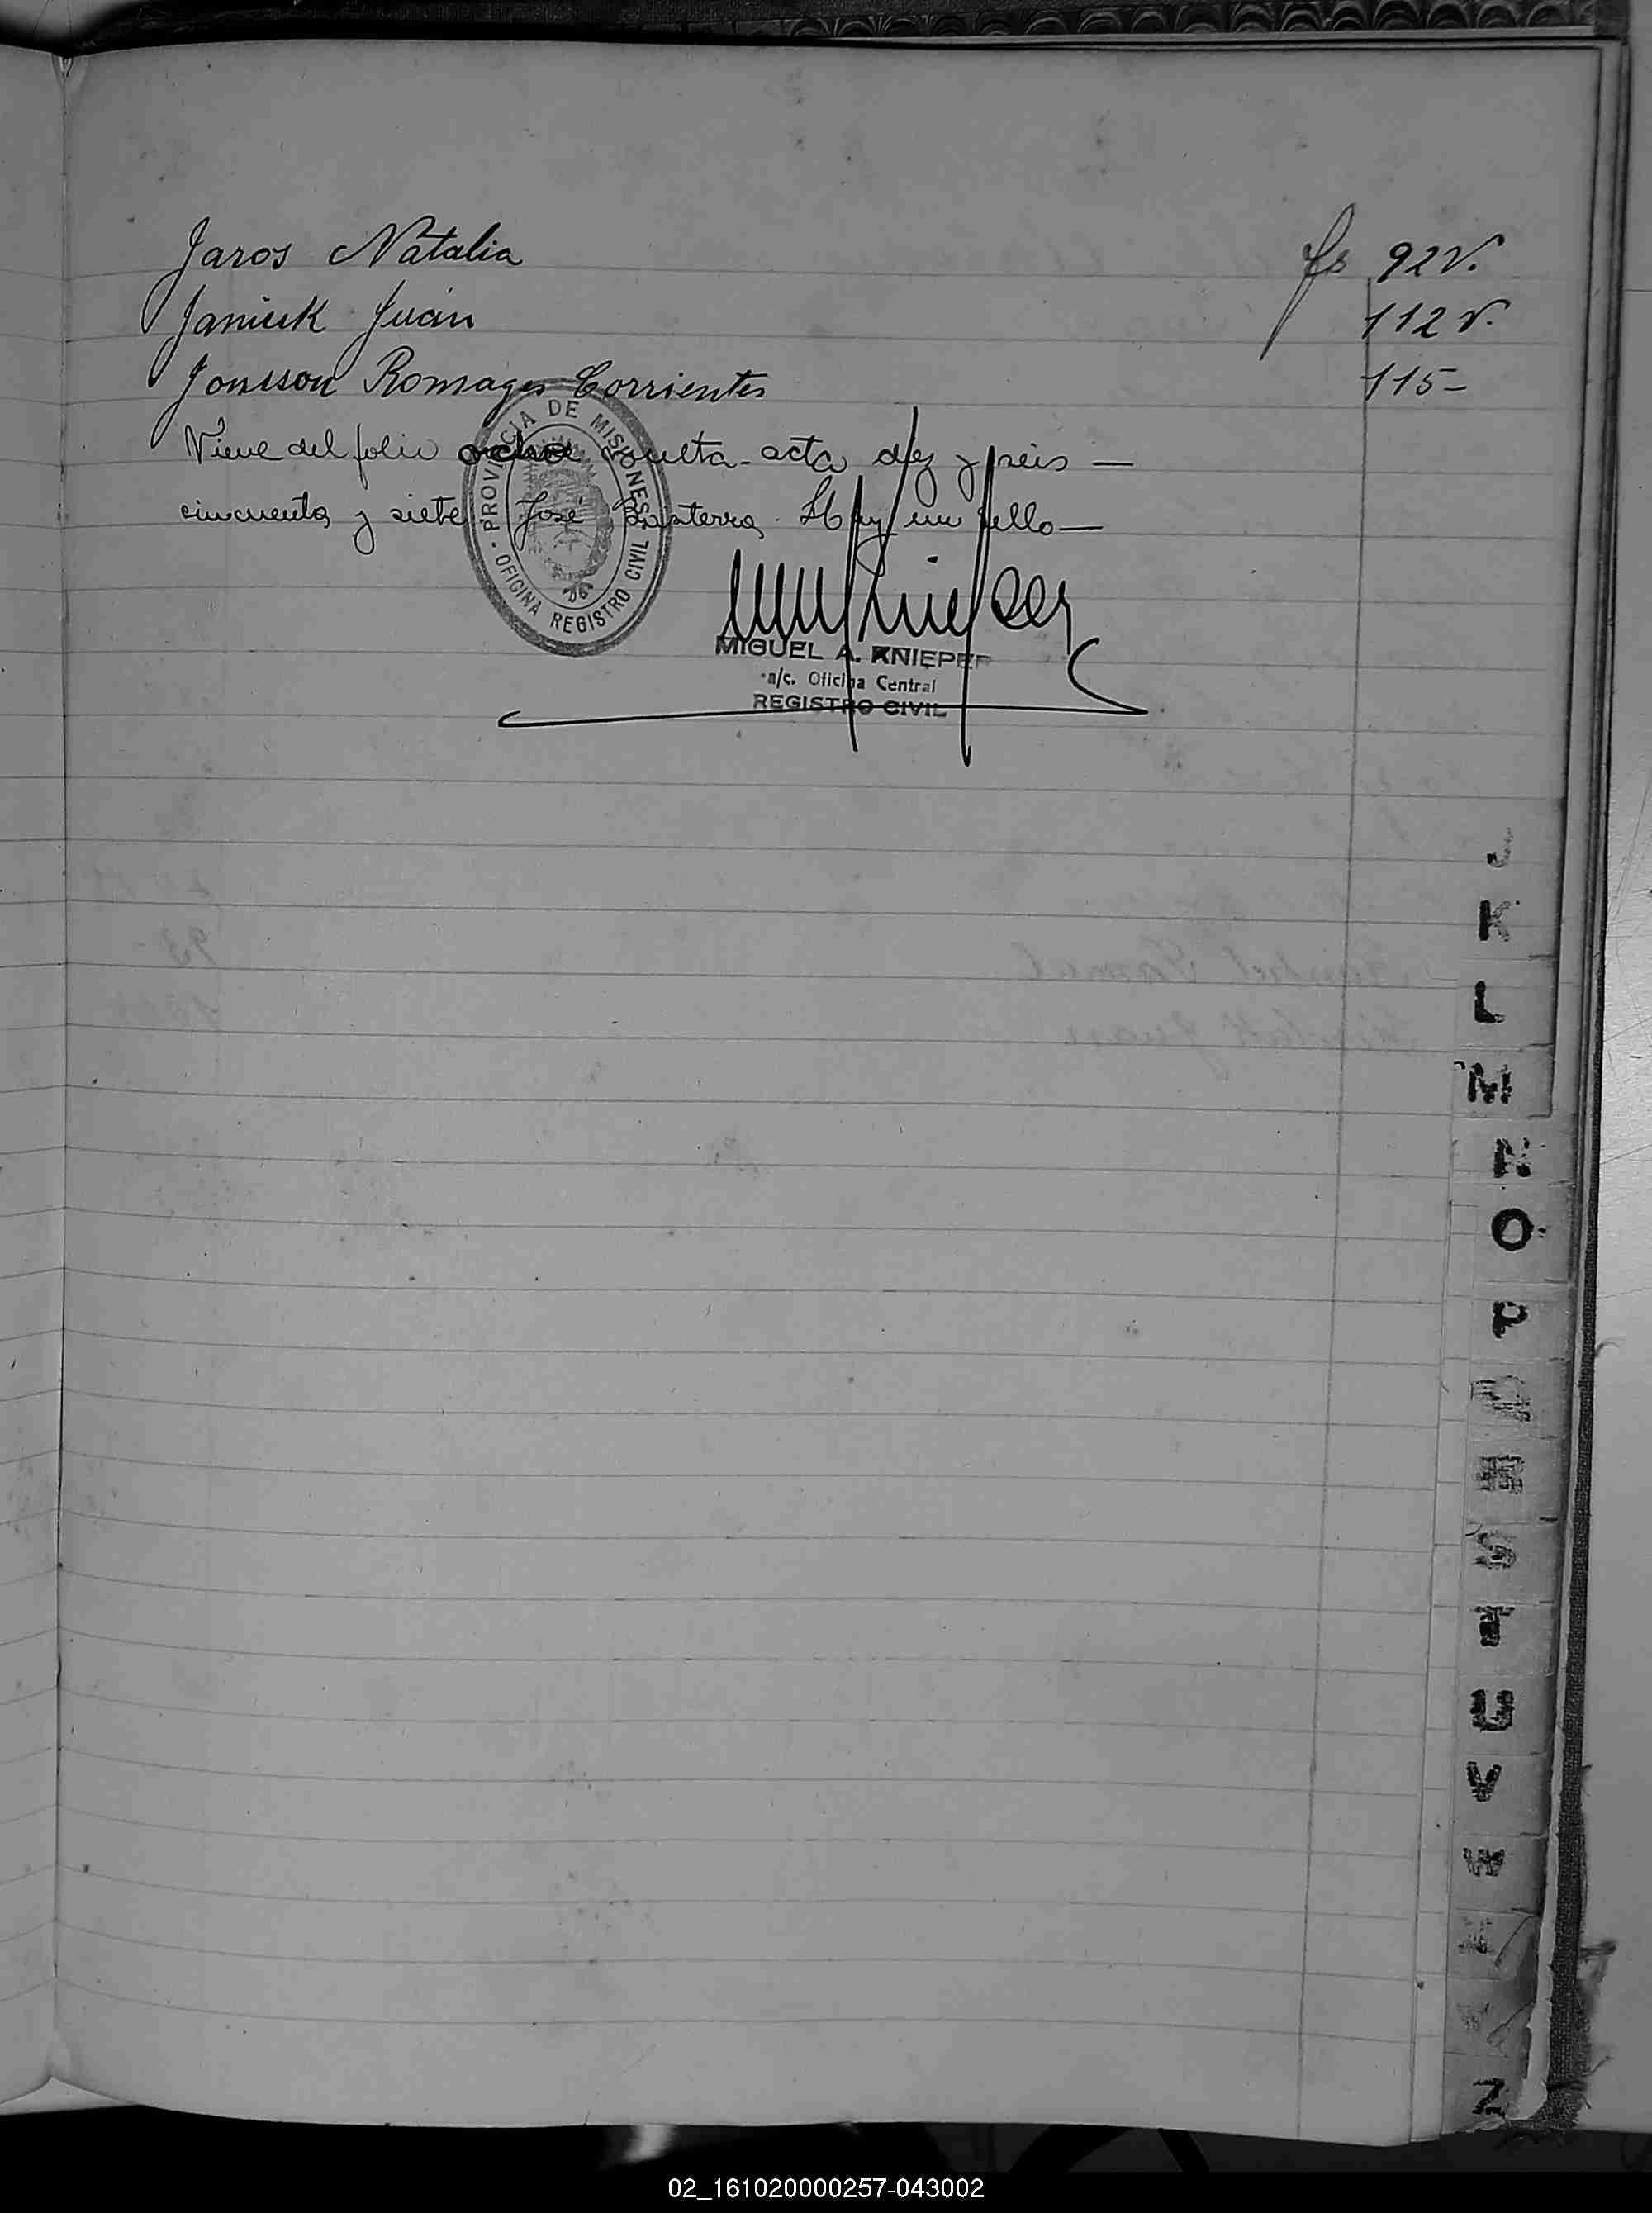 Jaros Natalia fs 92 v.
Janiuk Juan 112 v.
Jonsson Romages Corrientes 115-
Viene del folio ocho vuelta - acta diez y seis —
cincuenta y siete José Basterra. Hay un sello —
PROVINCIA DE MISIONES
OFICINA REGISTRO CIVIL
MIGUEL A. KNIEPER
a/c. Oficina Central
REGISTRO CIVIL
J
K
L
M
N
O
P
Q
R
S
T
U
V
W
Z
02_161020000257-043002